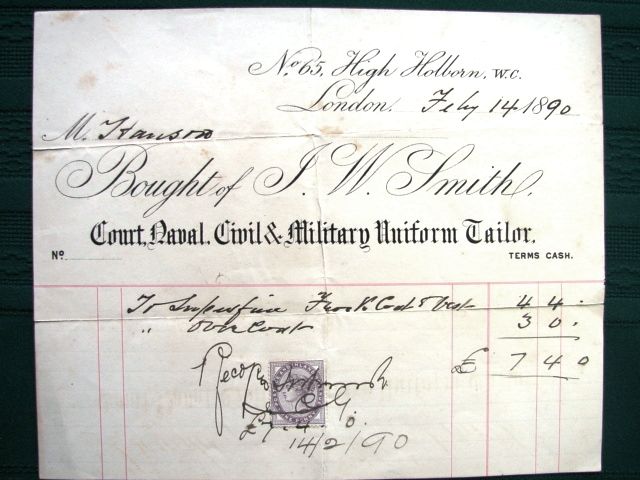 No. 65, High Holborn, W.C.
London. Feby 14 1890
Mr. Hanson
Bought of J. W. Smith.
Court, Naval, Civil & Military Uniform Tailor.
No
TERMS CASH.
To Superfine Frock Coat & Vest 4 4 .
" Over Coat 3 0 .
£ 7 4 0
Recd
£7. 4. 0.
14/2/90